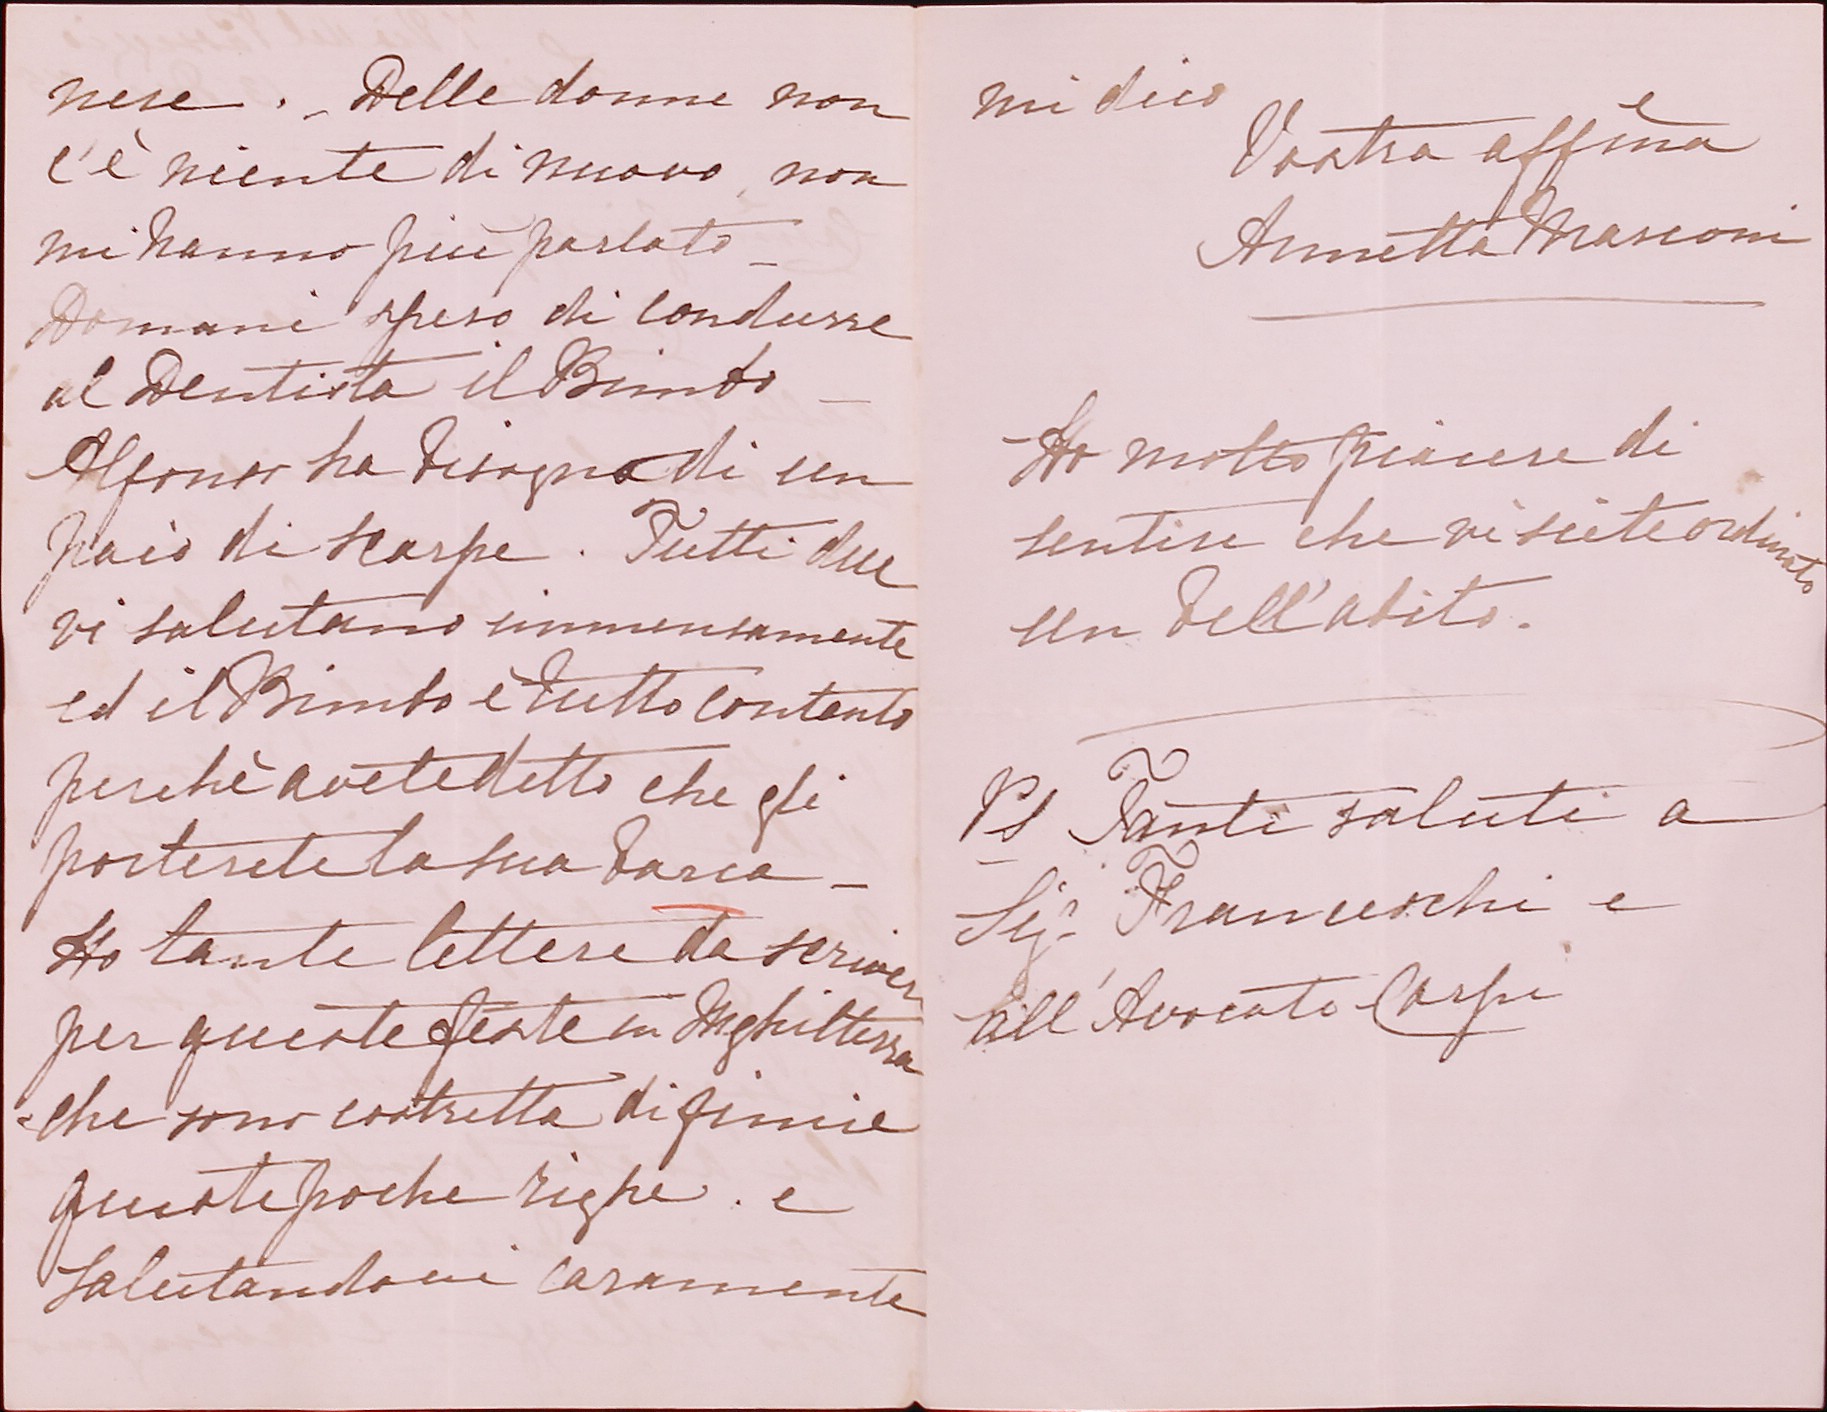 nese. – Delle donne non
c'è niente di nuovo, non
mi hanno più parlato –
Domani spero di condurre
al Dentista il Bimbo –
Alfonso ha bisogno di un
paio di scarpe. Tutti due
vi salutano immensamente
ed il Bimbo è tutto contento
perchè avete detto che gli
porterete la sua barca –
Ho tante lettere da scriver
per queste feste in Inghilterra
che sono costretta di finire
queste poche righe. e
Salutandovi caramente
mi dico
Vostra affma
Annetta Marconi
Ho molto piacere di
sentire che vi siete ordinato
un bell'abito.
PS Tanti saluti a
Sigr Franceschi e
all'Avocato Carpi